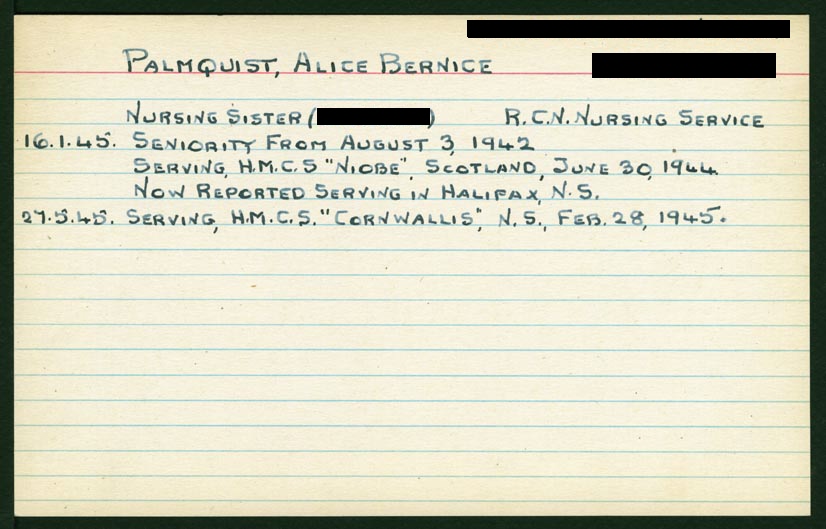 PALMQUIST, ALICE BERNICE
NURSING SISTER ( ) R.C.N. NURSING SERVICE
16.1.45. SENIORITY FROM AUGUST 3, 1942
SERVING, H.M.C.S "NIOBE", SCOTLAND, JUNE 30, 1944.
NOW REPORTED SERVING IN HALIFAX, N.S.
27.5.45. SERVING, H.M.C.S. "CORNWALLIS", N.S., FEB. 28, 1945.